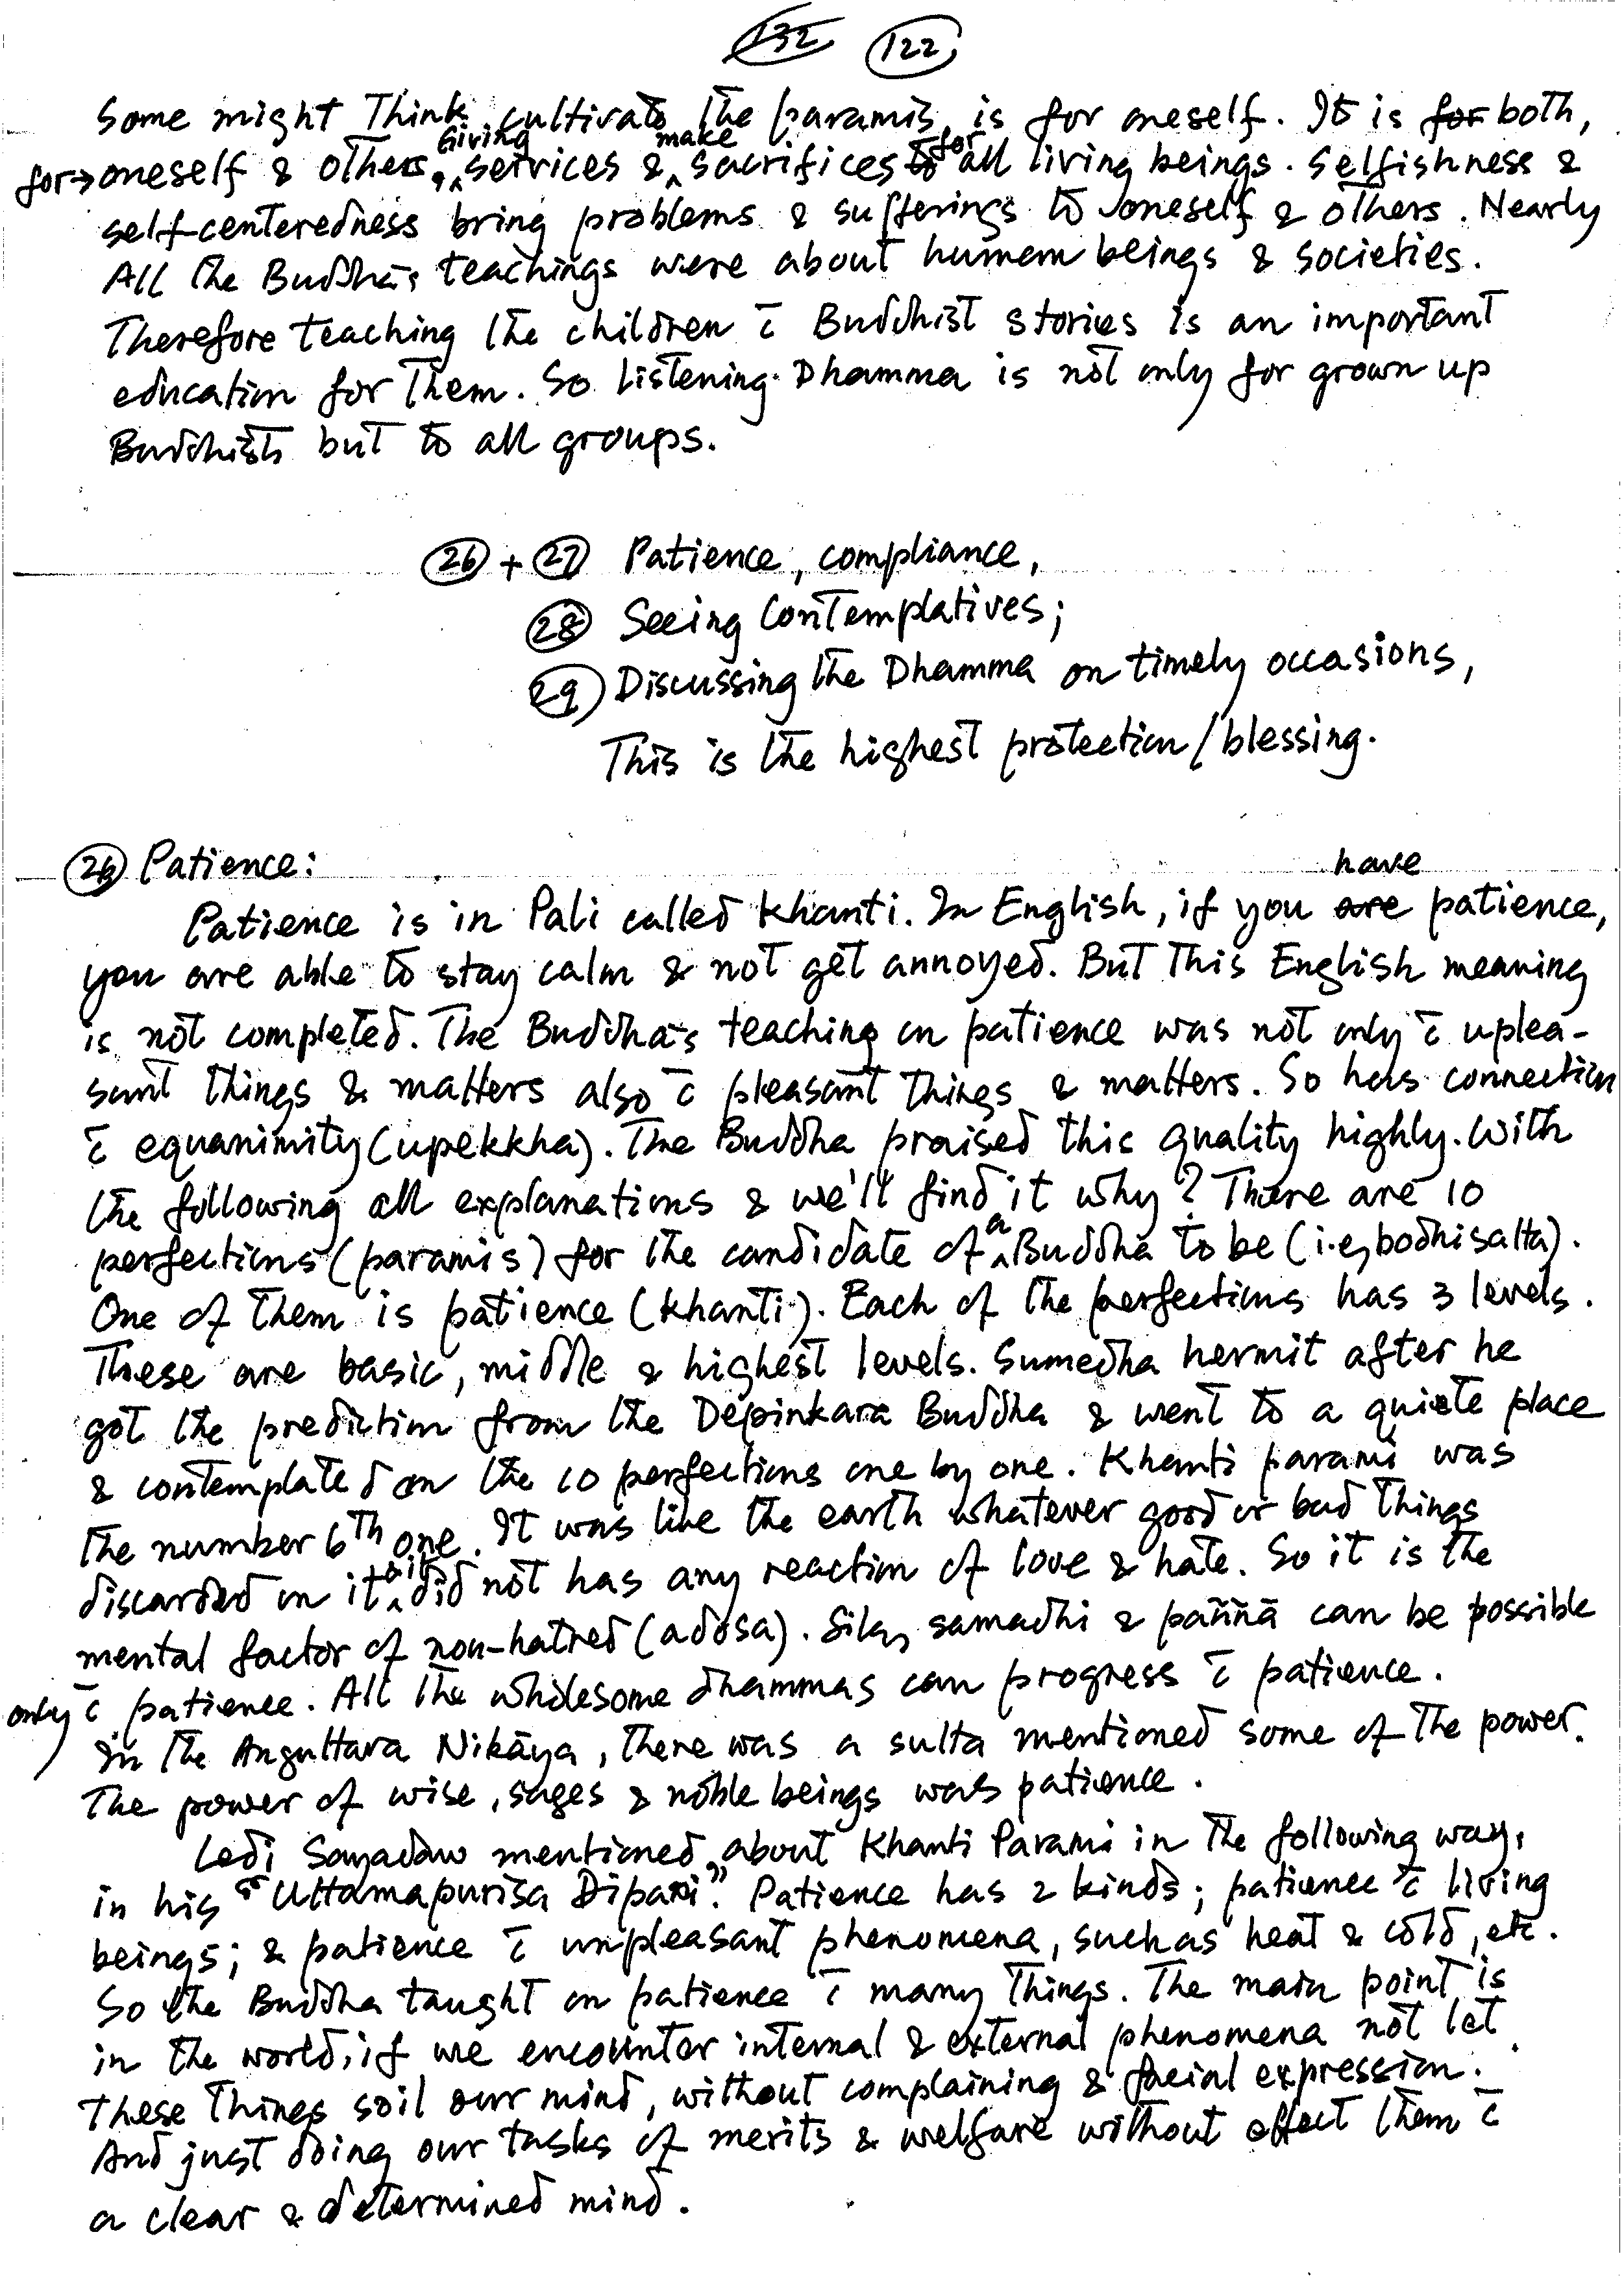 132 122
Some might Think cultivate the paramis is for oneself. It is for both,
for→oneself & others, Giving services & make sacrifices to for all living beings. Selfishness &
self-centeredness bring problems & sufferings to oneself & others. Nearly
All the Buddha's teachings were about human beings & societies.
Therefore teaching the children c̄ Buddhist stories is an important
education for Them. So Listening Dhamma is not only for grown up
Buddhists but to all groups.
26 + 27 Patience, compliance,
28 Seeing Contemplatives;
29 Discussing the Dhamma on timely occasions,
This is the highest protection/blessing.
26 Patience:
Patience is in Pali called Khanti. In English, if you are have patience,
you are able to stay calm & not get annoyed. But This English meaning
is not completed. The Buddha's teaching on patience was not only c̄ uplea-
sant Things & matters also c̄ pleasant Things & matters. So has connection
c̄ equanimity (upekkha). The Buddha praised this quality highly. With
the following all explanations & we'll find it why? There are 10
perfections (paramis) for the candidate of a Buddha to be (i.e, bodhisatta).
One of Them is patience (khanti). Each of the perfections has 3 levels.
These are basic, middle & highest levels. Sumedha hermit after he
got the prediction from the Depinkara Buddha & went to a quiete place
& contemplated on the 10 perfections one by one. Khanti parami was
the number 6th one. It was like the earth whatever good or bad Things
discarded on it, it did not has any reaction of love & hate. So it is the
mental factor of non-hatred (adosa). Sila, samadhi & paññā can be possible
only c̄ patience. All the wholesome dhammas can progress c̄ patience.
In the Anguttara Nikāya, there was a sutta mentioned some of the power.
The power of wise, sages & noble beings was patience.
Ledi Sayadaw mentioned about Khanti Parami in The following way,
in his "Uttamapurisa Dipani". Patience has 2 kinds; patience c̄ living
beings; & patience c̄ unpleasant phenomena, such as heat & cold, etc.
So the Buddha taught on patience c̄ many Things. The main point is
in the world, if we encounter internal & external phenomena not let
these Things soil our mind, without complaining & facial expression.
And just doing our tasks of merits & welfare without effect them c̄
a clear & determined mind.